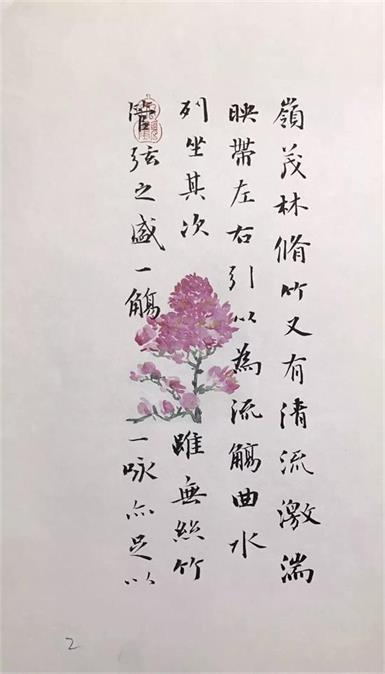 嶺茂林脩竹又有清流激湍
映帶左右引以為流觴曲水
列坐其次雖無絲竹
管弦之盛一觴一咏亦足以
2